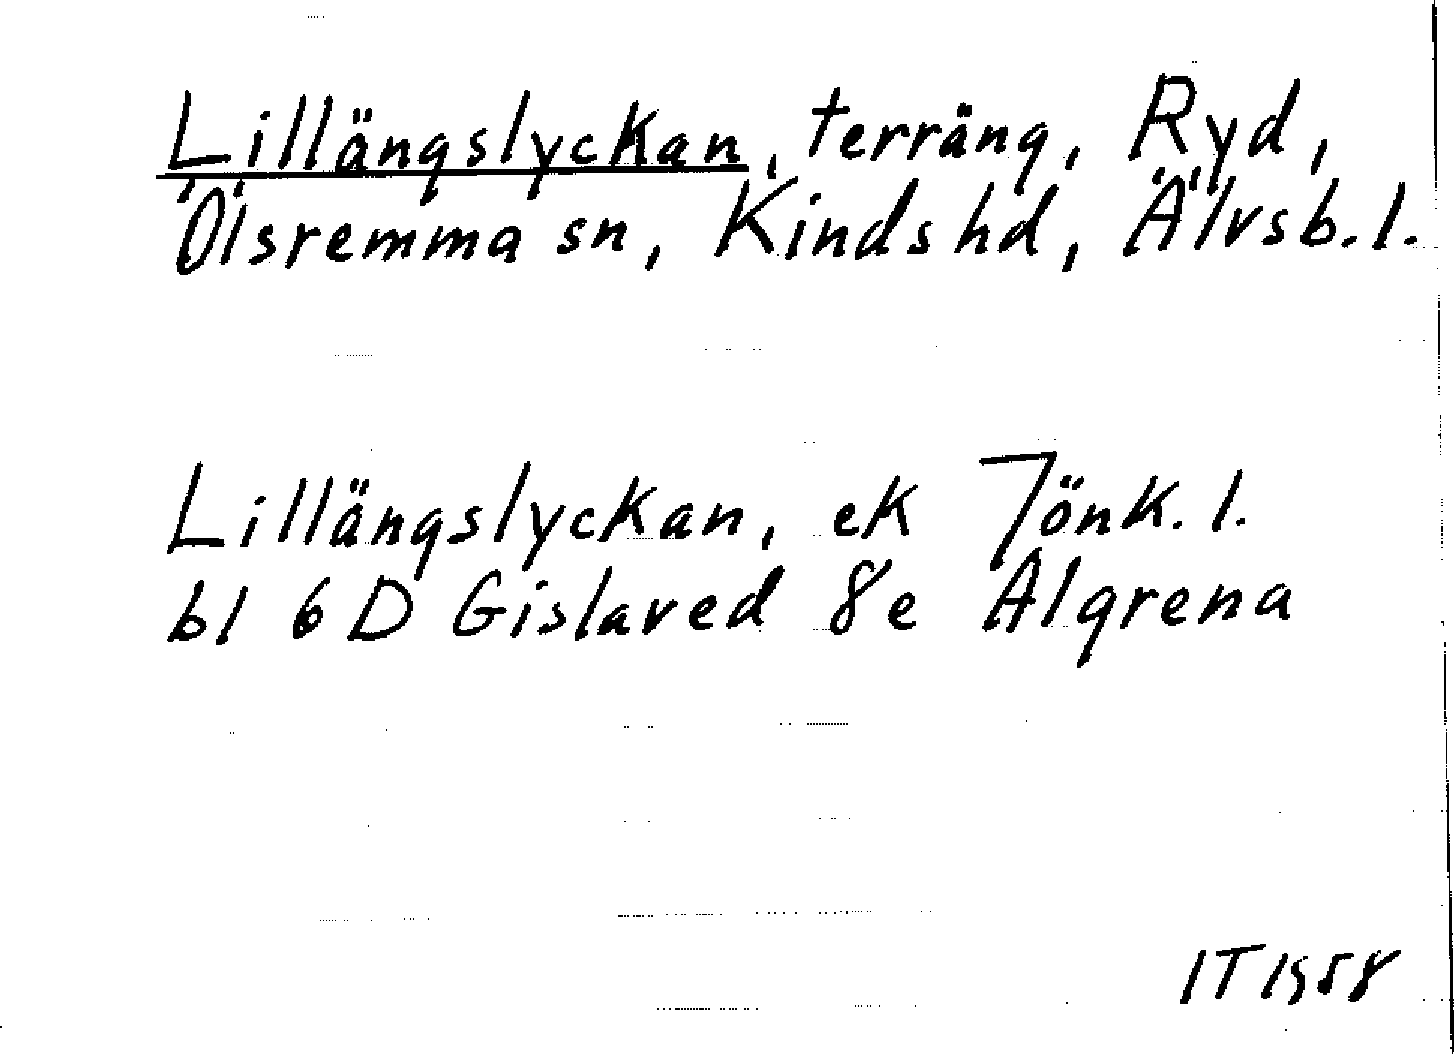 Lillängslyckan, terräng, Ryd,
Ölsremma sn, Kinds hd, Älvsb. l.
Lillängslyckan, ek Jönk. l.
bl 6 D Gislaved 8e Älgrena
IT 1958